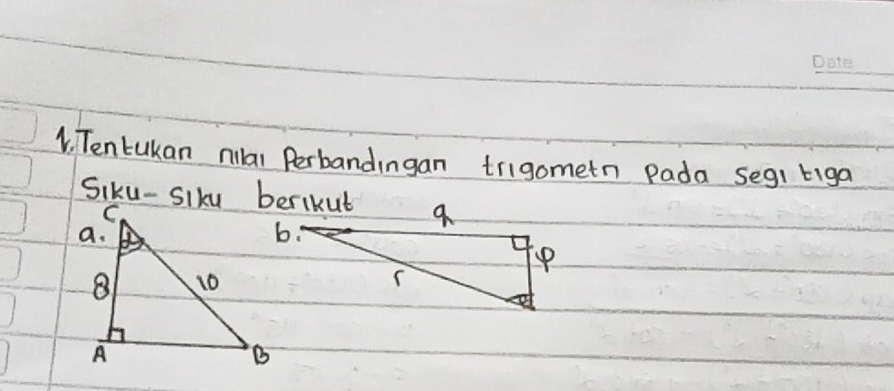 Date
1. Tentukan nilai Perbandingan trigometri pada segi tiga
Siku-siku berikut
a. C 8 10 A B
b. q r p